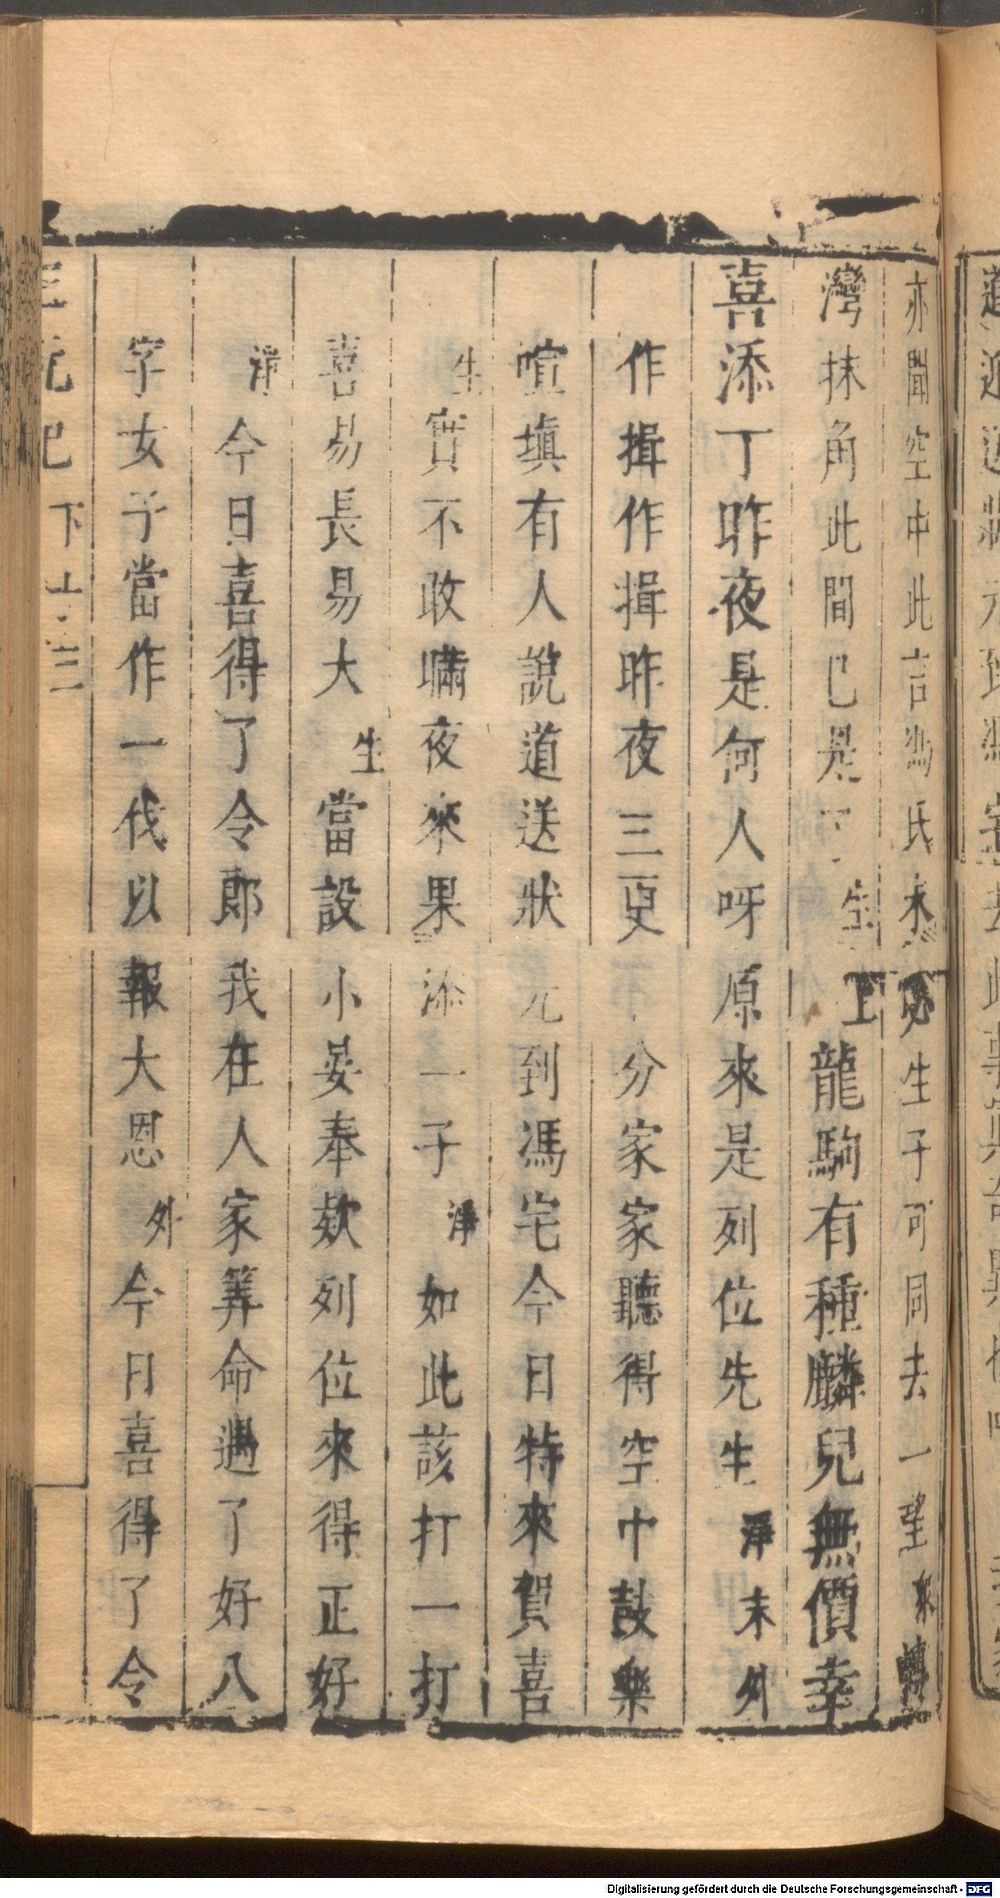 亦聞空中此言馮氏必生子可同去一望衆轉
灣抹角此間已是了生上龍駒有種麟兒無價幸
喜添丁昨夜是何人呀原來是列位先生淨末外
作揖作揖昨夜三更分家家聽得空中鼓樂
喧填有人說道送狀元到馮宅今日特來賀喜
生實不敢瞞夜來果添一子淨如此該打一打
喜易長易大生當設小晏奉欵列位來得正好
淨今日喜得了令郎我在人家筭命遇了好八
字女子當作一伐以報大恩外今日喜得了令
三元記下
Digitalisierung gefördert durch die Deutsche Forschungsgemeinschaft - DFG